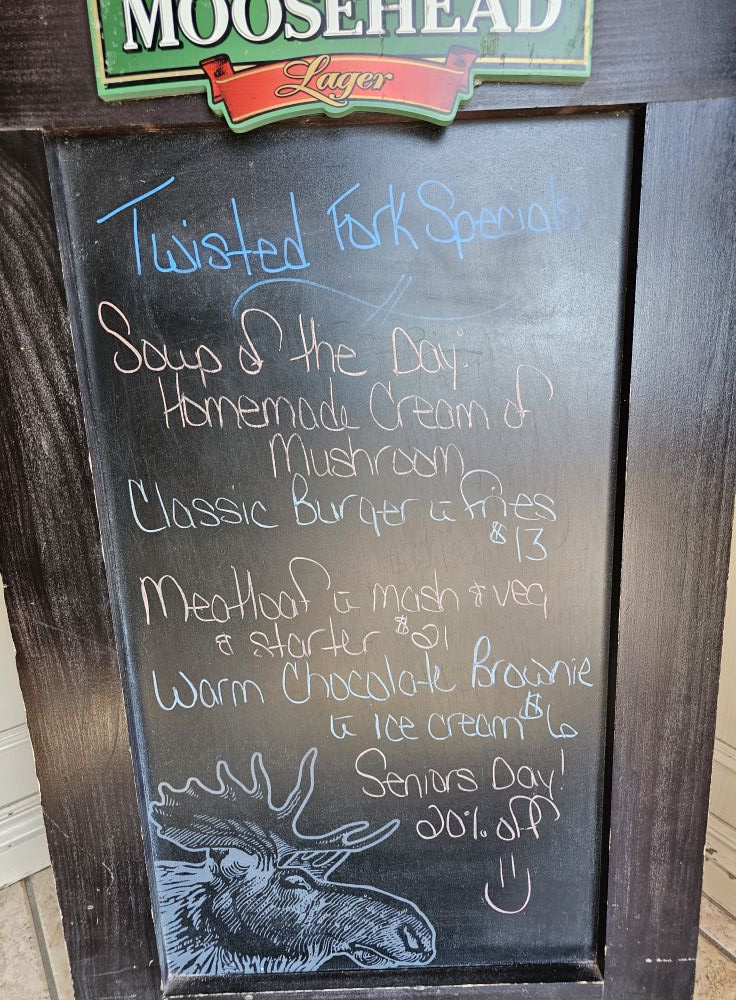 MOOSEHEAD
Lager
Twisted Fork Specials
Soup of the Day:
Homemade Cream of
Mushroom
Classic Burger & fries
$13
Meatloaf & mash & veg
& starter $21
Warm Chocolate Brownie
& Ice cream $6
Seniors Day!
20% off